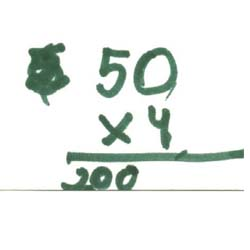 50
×4
200